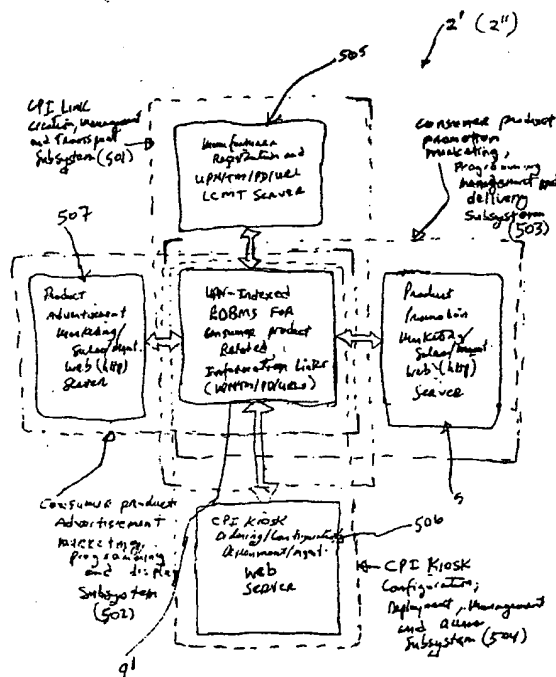 2' (2")
505
CPI Link
Creation, Management
and Transport
Subsystem (501)
Manufacturer
Registration and
UPN/TM/PD/URL
LCMT Server
Consumer product
promotion
marketing,
Programming
management and
delivery
Subsystem
(503)
507
Product
Advertisement
Marketing/
Sales/Mgmt.
Web (http)
Server
UPN-Indexed
RDBMS FOR
Consumer product
Related
Information Links
(UPN/TM/PD/URLs)
Product
Promotion
Marketing/
Sales/Mgmt
Web (http)
Server
Consumer product
Advertisement
marketing,
programming
and display
Subsystem
(502)
9'
CPI Kiosk
Ordering/Configuration
Deployment/Mgmt.
Web
Server
506
CPI Kiosk
Configuration,
Deployment, Management
and Access
Subsystem (504)